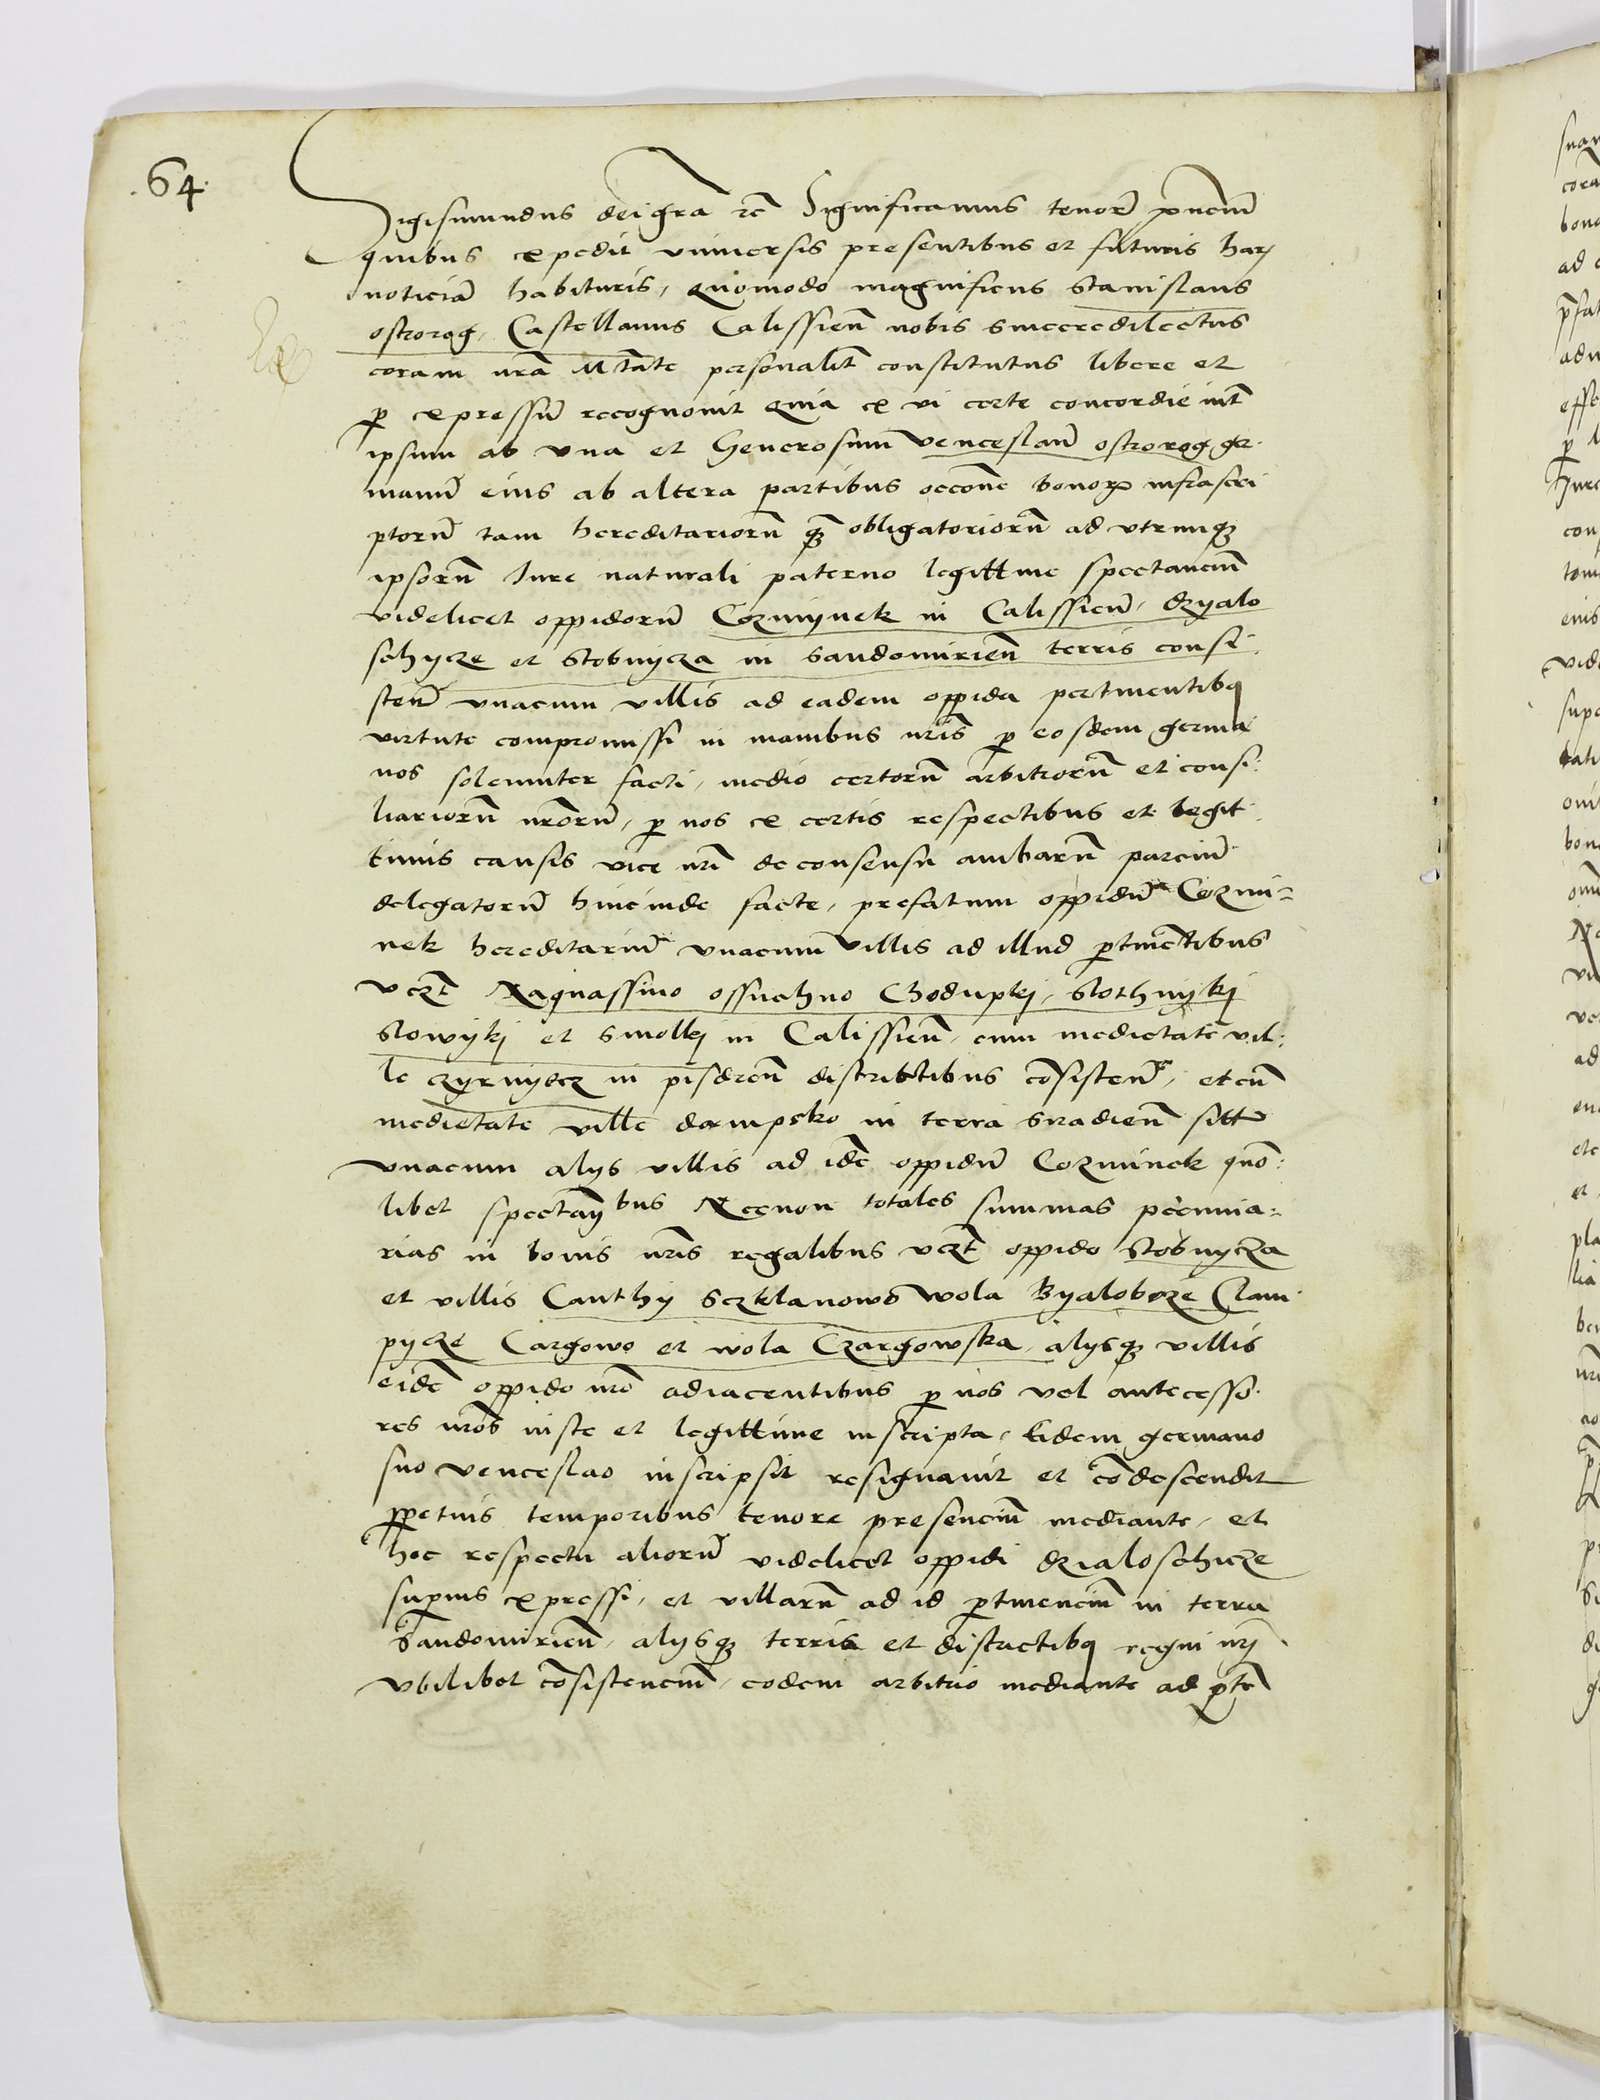 .64.
Sigismundus dei gra̅ rc̅ Significamus tenore̅ pn̅cium̅
quibus expedit universis presentibus et futuris har̅
noticia̅ habituris, quomodo magnificus Stanislaus
ostrorog, Castellanus Calissien̅ nobis sinceredilectus
coram nr̅a M̅tate personalit̅ constitutus libere et
p̱ expressu̅ recognovit quia ex vi certe concordie int̅
ipsum ab una et Generosum venceslau̅ ostrorog ger-
manu̅ eius ab altera partibus occone̅ bonoꝝ infrascri
ptoru̅ tam hereditarioru̅ qꝫ̅ obligatorioru̅ ad utrunqꝫ
ipsoru̅ Jure naturali paterno legittime spectanciu̅
videlicet oppidoru̅ Cozmynek in Calissien̅, dzyalo
schycze et Stobnycza in Sandomirien̅ terris consi-
sten̅ unacum villis ad eadem oppida pertinentibꝫ
virtute compromissi in manibus nr̅is p̱ eosdem germa
nos solenniter facti, medio certoru̅ arbitroru̅ et consi-
liarioru̅ nr̅oru̅, p̱ nos ex certis respectibus et legit-
timis causis vice nr̅i de consensu ambaru̅ parciu̅
delegatoru̅ hincinde facte, prefatum oppidu̅ Cozmi=
nek hereditariu̅ unacum villis ad illud p̱tine̅tibus
vcz̅t Naquassino ossuchno Chodupkj, Slothnykj
Slowykj et Smolkj in Calissien̅, cum medietate vil-
le czyrnyecz in pisdren̅ districtibus co̅sisten̅, et cu̅
medietate ville dampsko in terra Siradien̅ sitt
unacum alys villis ad ide̅ oppidu̅ Cozminek quo̅-
libet spectan̅bus Necnon totales summas pecunia=
rias in bonis nr̅is regalibus vcz̅t oppido Stobnycza
et villis Canthy Sczklanowo wola Byaloboze Clam
pycze Cargowo et wola Czargowska, alysqꝫ villis
eide̅ oppido nr̅o adiacentibus p̱ nos vel antecesso-
res nr̅os iuste et legittime inscripta, Eidem germano
suo venceslao inscripsit resignavit et co̅descendit
ppetuis temporibus tenore presenciu̅ mediante, et
hoc respectu alioru̅ videlicet oppidi dzialoschicze
supius expressi, et villaru̅ ad id p̱tinenciu̅ in terra
Sandomirien̅, alysqꝫ terris et districtibꝫ regni nr̅j
ubilibet co̅sistenciu̅, eodem arbitrio mediante ad p̱te̅